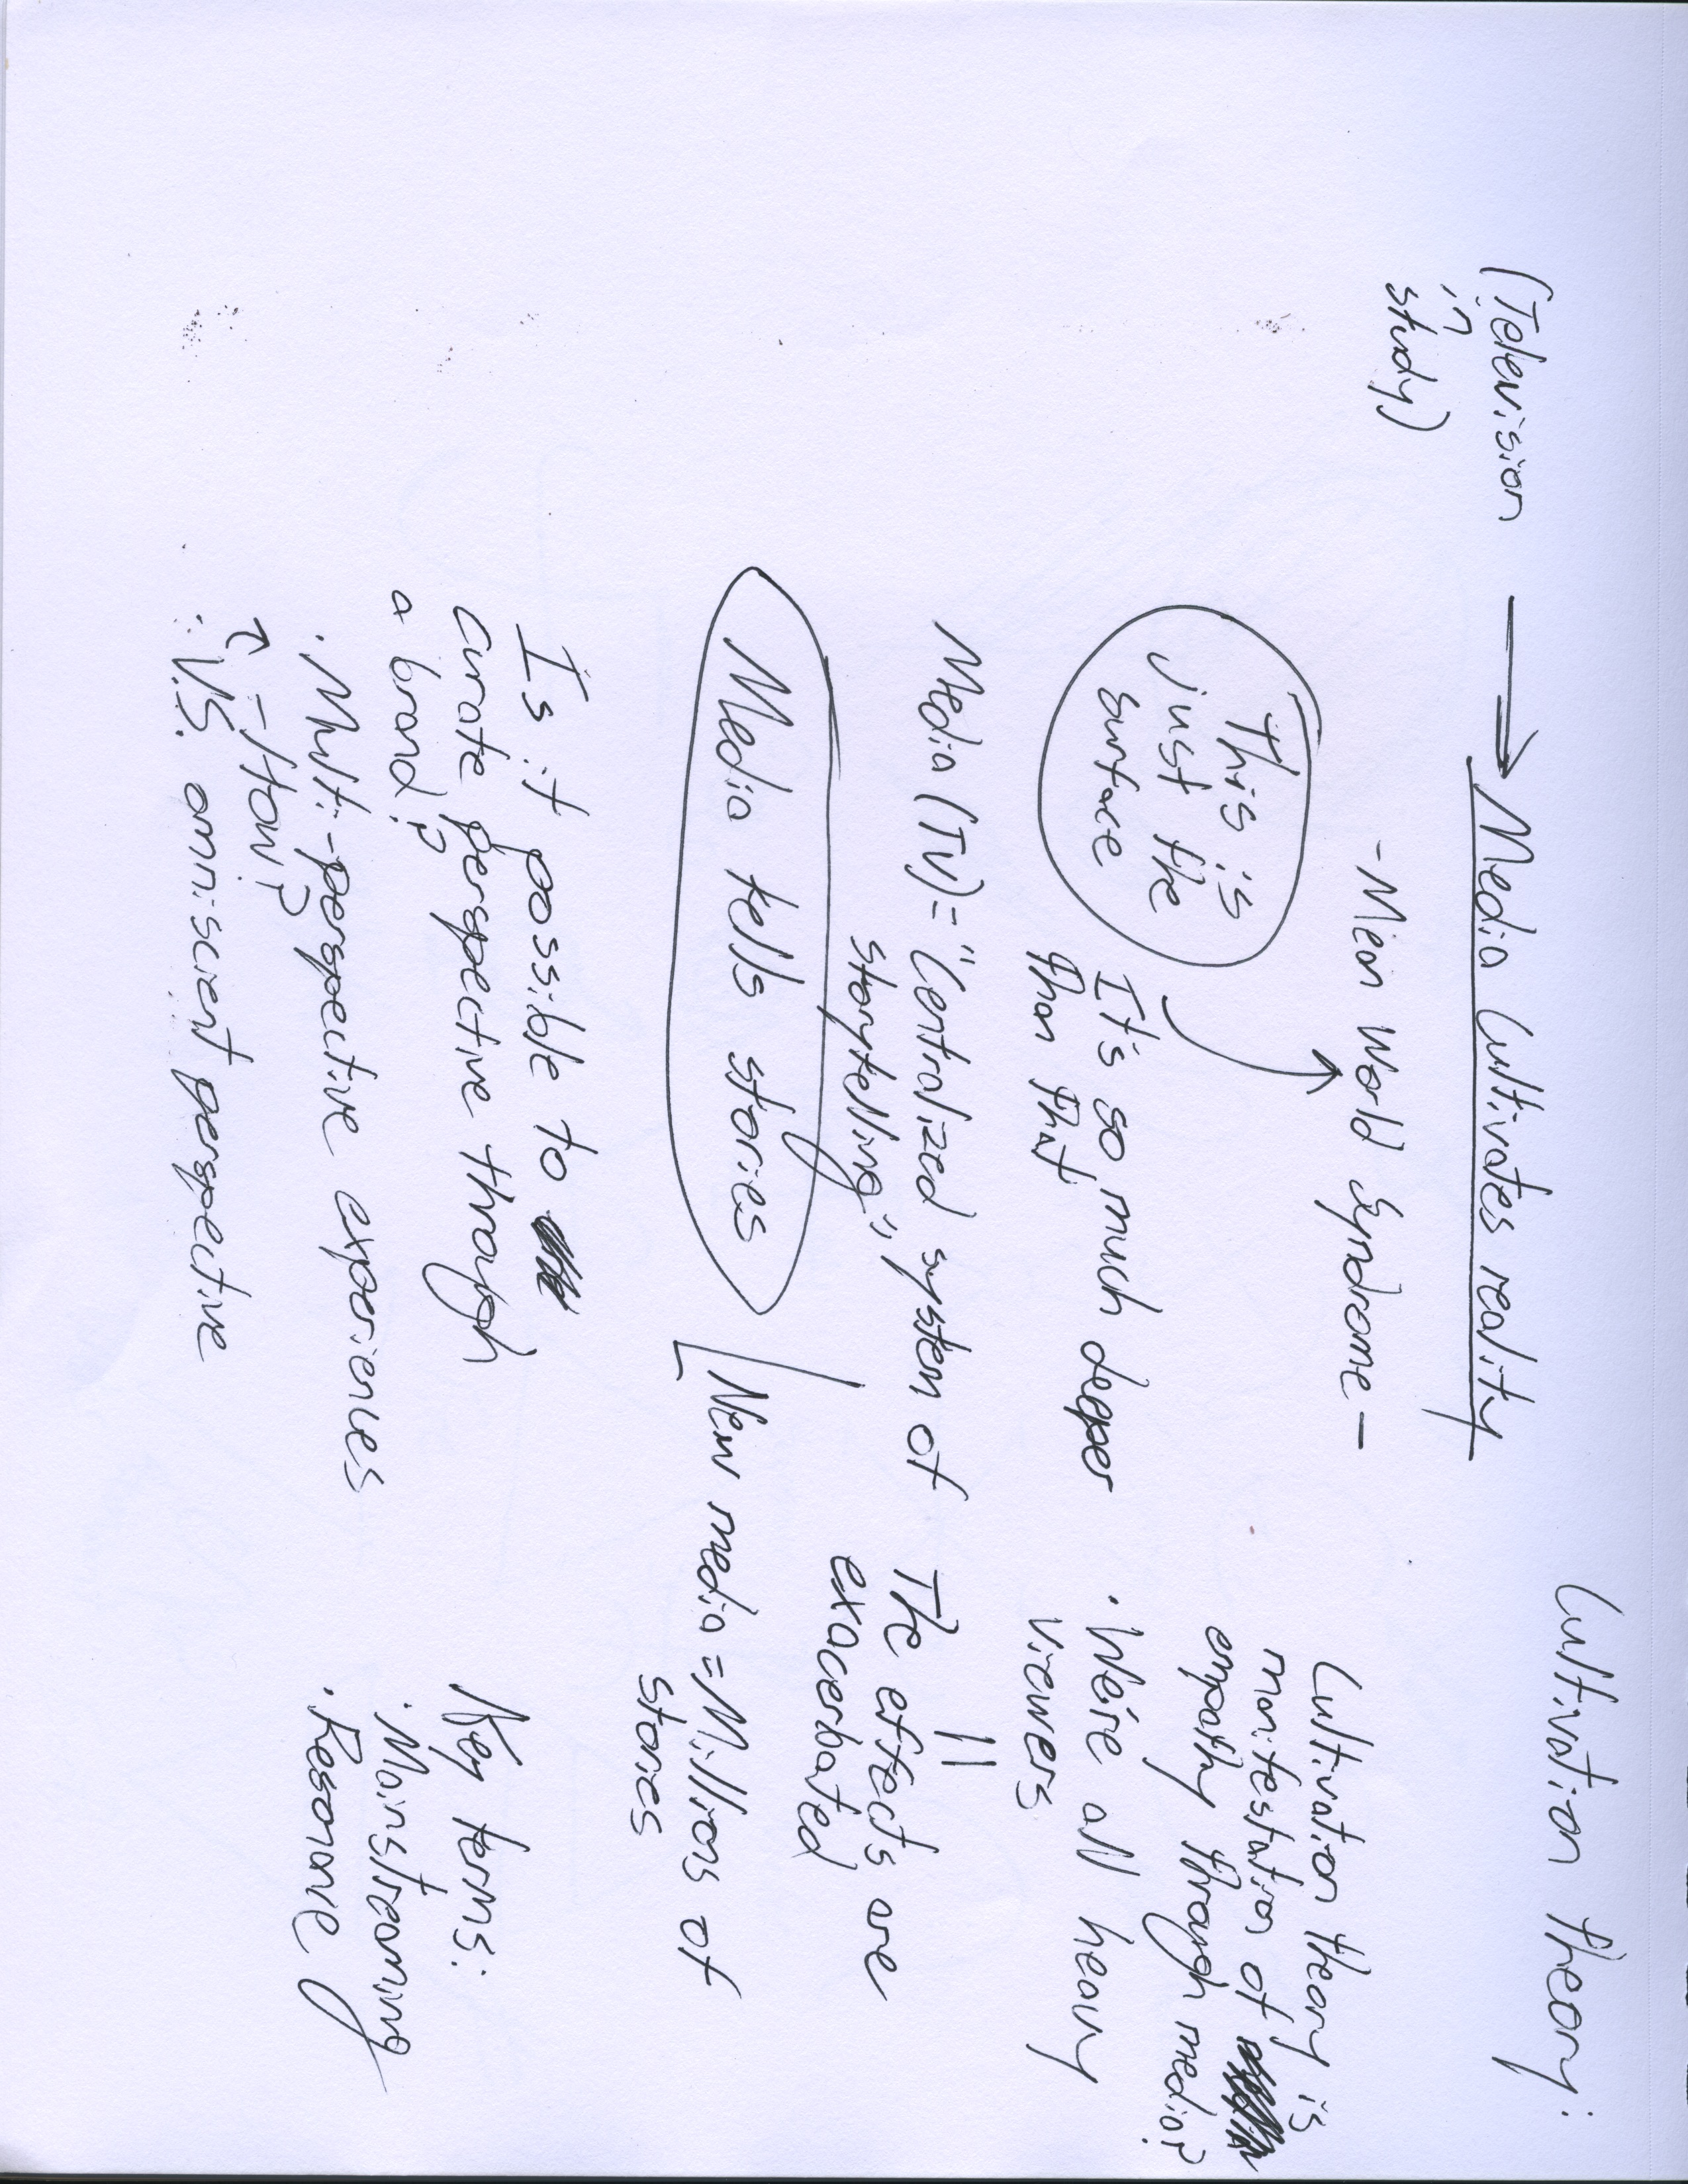 Cultivation theory:
(Television
in
study)
Media Cultivates reality
- Mean World Syndrome -
This is
just the
surface
It's so much deeper
than that
Cultivation theory is
manifestation of
empathy through media?
· We're all heavy
viewers
Media (TV) = "Centralized system of
storytelling",
The effects are
exacerbated
Media tells stories
New media = Millions of
stories
Is it possible to
curate perspective through
a brand?
· Multi-perspective experiences
- How?
V.S. omniscient perspective
Key terms:
· Mainstreaming
· Resonance